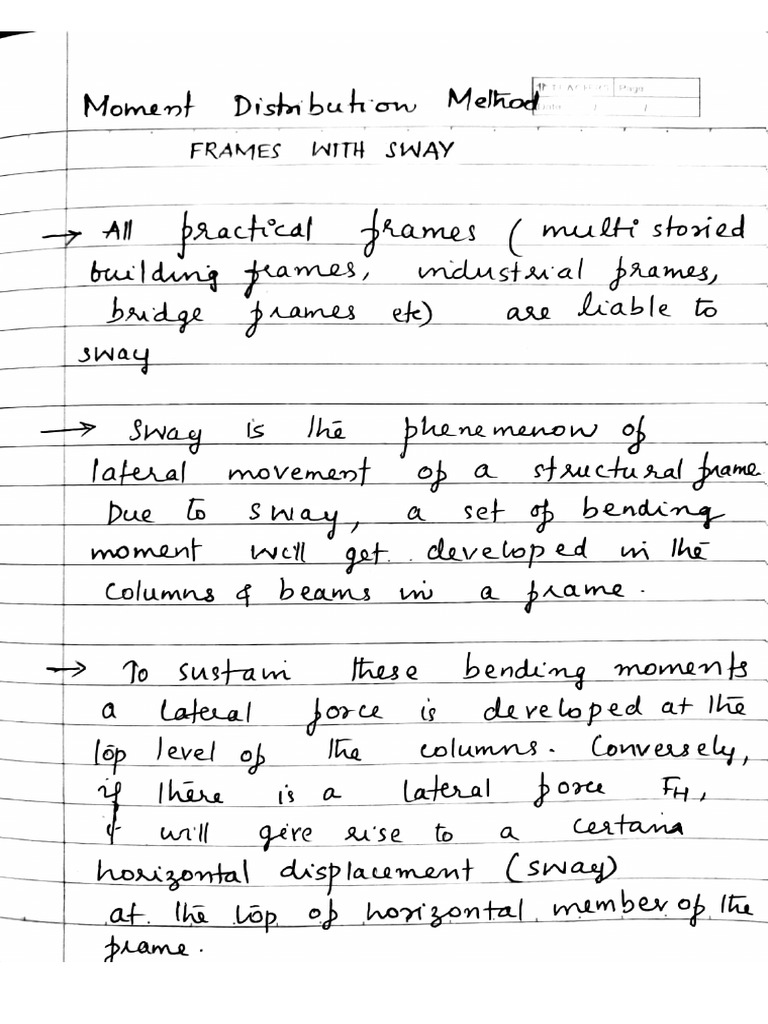 Moment Distribution Method
FRAMES WITH SWAY
→ All practical frames ( multi storied
building frames, industrial frames,
bridge frames etc) are liable to
sway
→ Sway is the phenemenon of
lateral movement of a structural frame
Due to sway, a set of bending
moment will get developed in the
columns & beams in a frame.
→ To sustain these bending moments
a lateral force is developed at the
top level of the columns. Conversely,
if there is a lateral force FH,
it will give rise to a certain
horizontal displacement (sway)
at the top of horizontal member of the
frame.